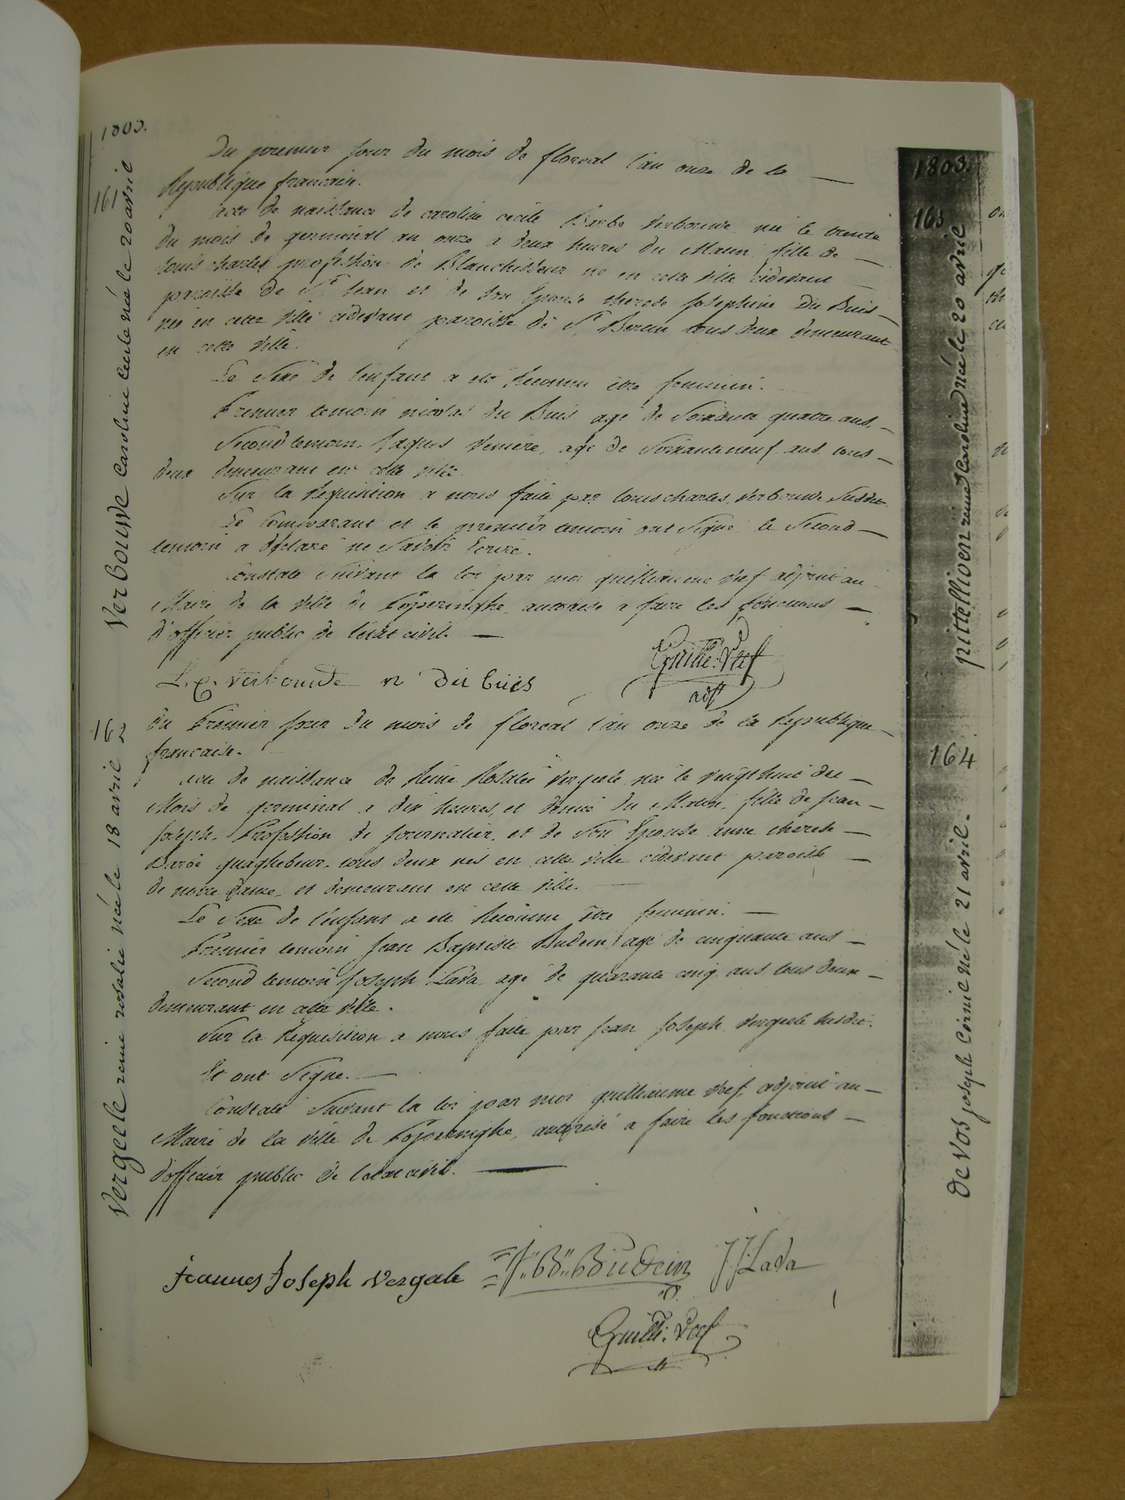 1803.
161
Verbouwe Caroline Cecile née le 20 avril
Du premier jour du mois de floreal l'an onze de la
Republique francaise.
acte de naissance de caroline cecile Verbouwe née le trente
du mois de germinal an onze a deux heures du Matin, fille de
louis charles profession de Blanchisseur né en cette ville cidevant
paroisse de St Jean et de son Epouse therese Josephine Du Buis
née en cette ville cidevant paroisse de St Bertin tous deux demeurant
en cette ville.
Le Sexe de l'enfant a eté reconnu être feminin.
Premier temoin nicolas Du Buis agé de Soixante quatre ans,
Second temoin Jaques agé de Soixante neuf ans tous
deux demeurant en cette ville
Sur la Requisition a nous faite par louis charles Verbouwe Susdit
Le Comparant et le premier temoin ont Signé le Second
temoin a déclaré ne Savoir Ecrire.
Constaté Suivant la loi par moi guilliaume Deef adjoint au
Maire de la ville de Poperinghe, autorisé a faire les fonctions
d'officier public de l'état civil.
L. C. Verbouwe n Du buis
Guille: Deef
adjt
162
Vergeele reine rosalie née le 18 avril
du Premier jour du mois de floreal l'an onze de la Republique
francaise.
acte de naissance de Reine Rosalie Vergeele née le vingt huit du
Mois de germinal a dix heures et demie du Matin, fille de Jean
Joseph, Profession de Journalier, et de Son Epouse anne therese
Quaghebeur, tous deux nés en cette ville cidevant paroisse
de notre dame, et demeurant en cette ville.
Le Sexe de l'enfant a eté Reconnu être feminin.
Premier temoin Jean Baptiste Budein agé de cinquante ans
Second temoin Joseph Lava agé de quarante cinq ans tous deux
demeurant en cette ville.
Sur la Requisition a nous faite par Jean Joseph Vergeele Susdit.
Et ont Signe.
Constaté Suivant la loi par moi guilliaume Deef adjoint au
Maire de la ville de Poperinghe, autorisé a faire les fonctions
d'officier public de l'etat civil.
Joannes Joseph Vergeele J. B. Budein J J Lava
Guille: Deef
1803.
163
pittellioen Caroline née le 20 avril
164
de Vos joseph Cornil né le 21 avril.